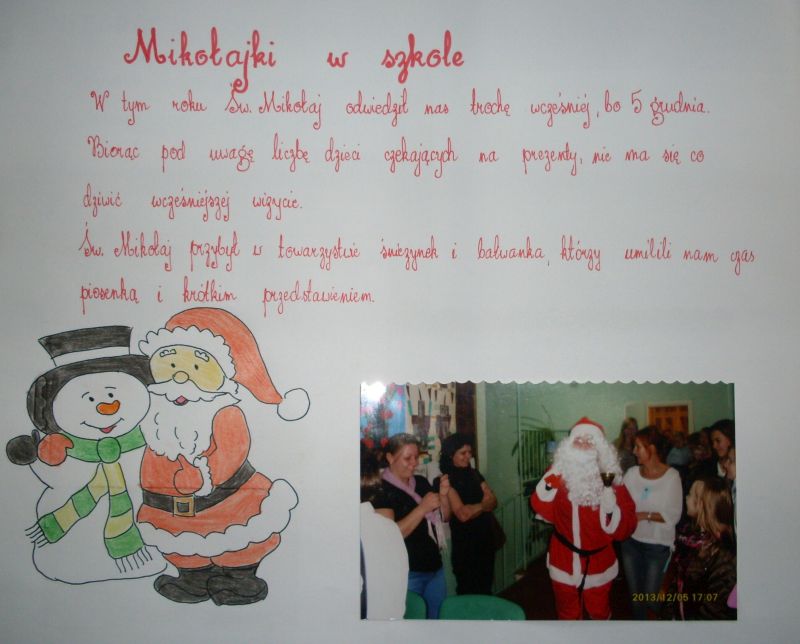 Mikołajki w szkole
W tym roku Św. Mikołaj odwiedził nas trochę wcześniej, bo 5 grudnia.
Biorąc pod uwagę liczbę dzieci czekających na prezenty, nie ma się co
dziwić wcześniejszej wizycie.
Św. Mikołaj przybył w towarzystwie śnieżynek i bałwanka, którzy umilili nam czas
piosenką i krótkim przedstawieniem.
2013/12/05 17:07